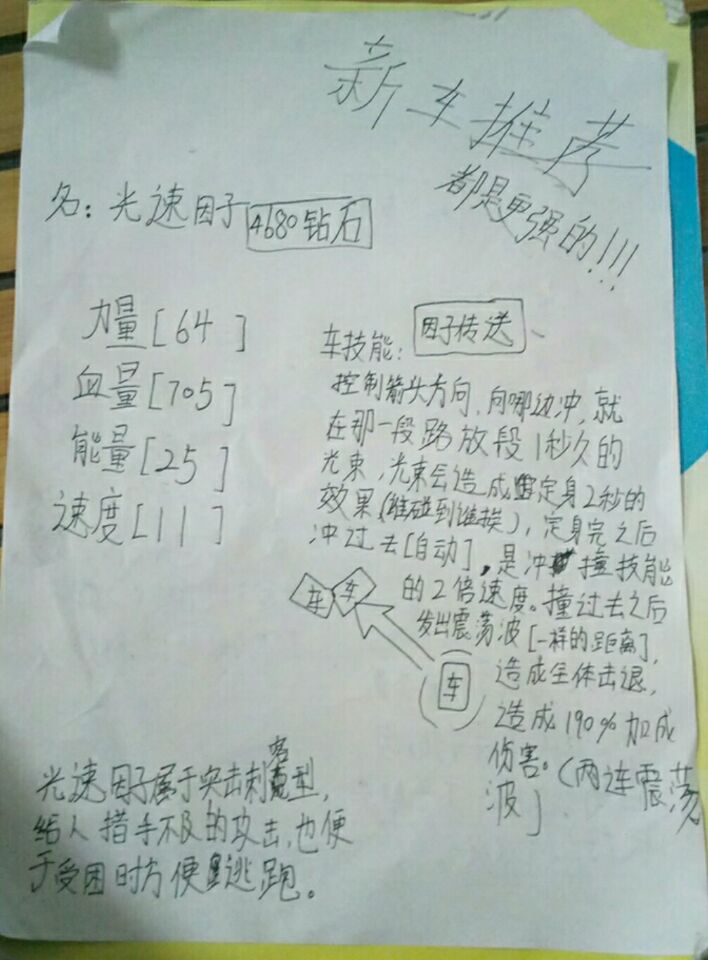 新车推荐
都是更强的!!!
名:光速因子 4680钻石
力量[64]
血量[705]
能量[25]
速度[11]
车技能: 因子传送
控制箭头方向,向哪边冲,就
在那一段路放段1秒久的
光束,光束会造成定身2秒的
效果(谁碰到谁挨),定身完之后
冲过去[自动],是冲撞技能
的2倍速度。撞过去之后
发出震荡波[一样的距离],
造成全体击退,
造成190%加成
伤害。(两连震荡
波]
车 车
车
光速因子属于突击刺客型,
给人措手不及的攻击,也便
于受困时方便逃跑。